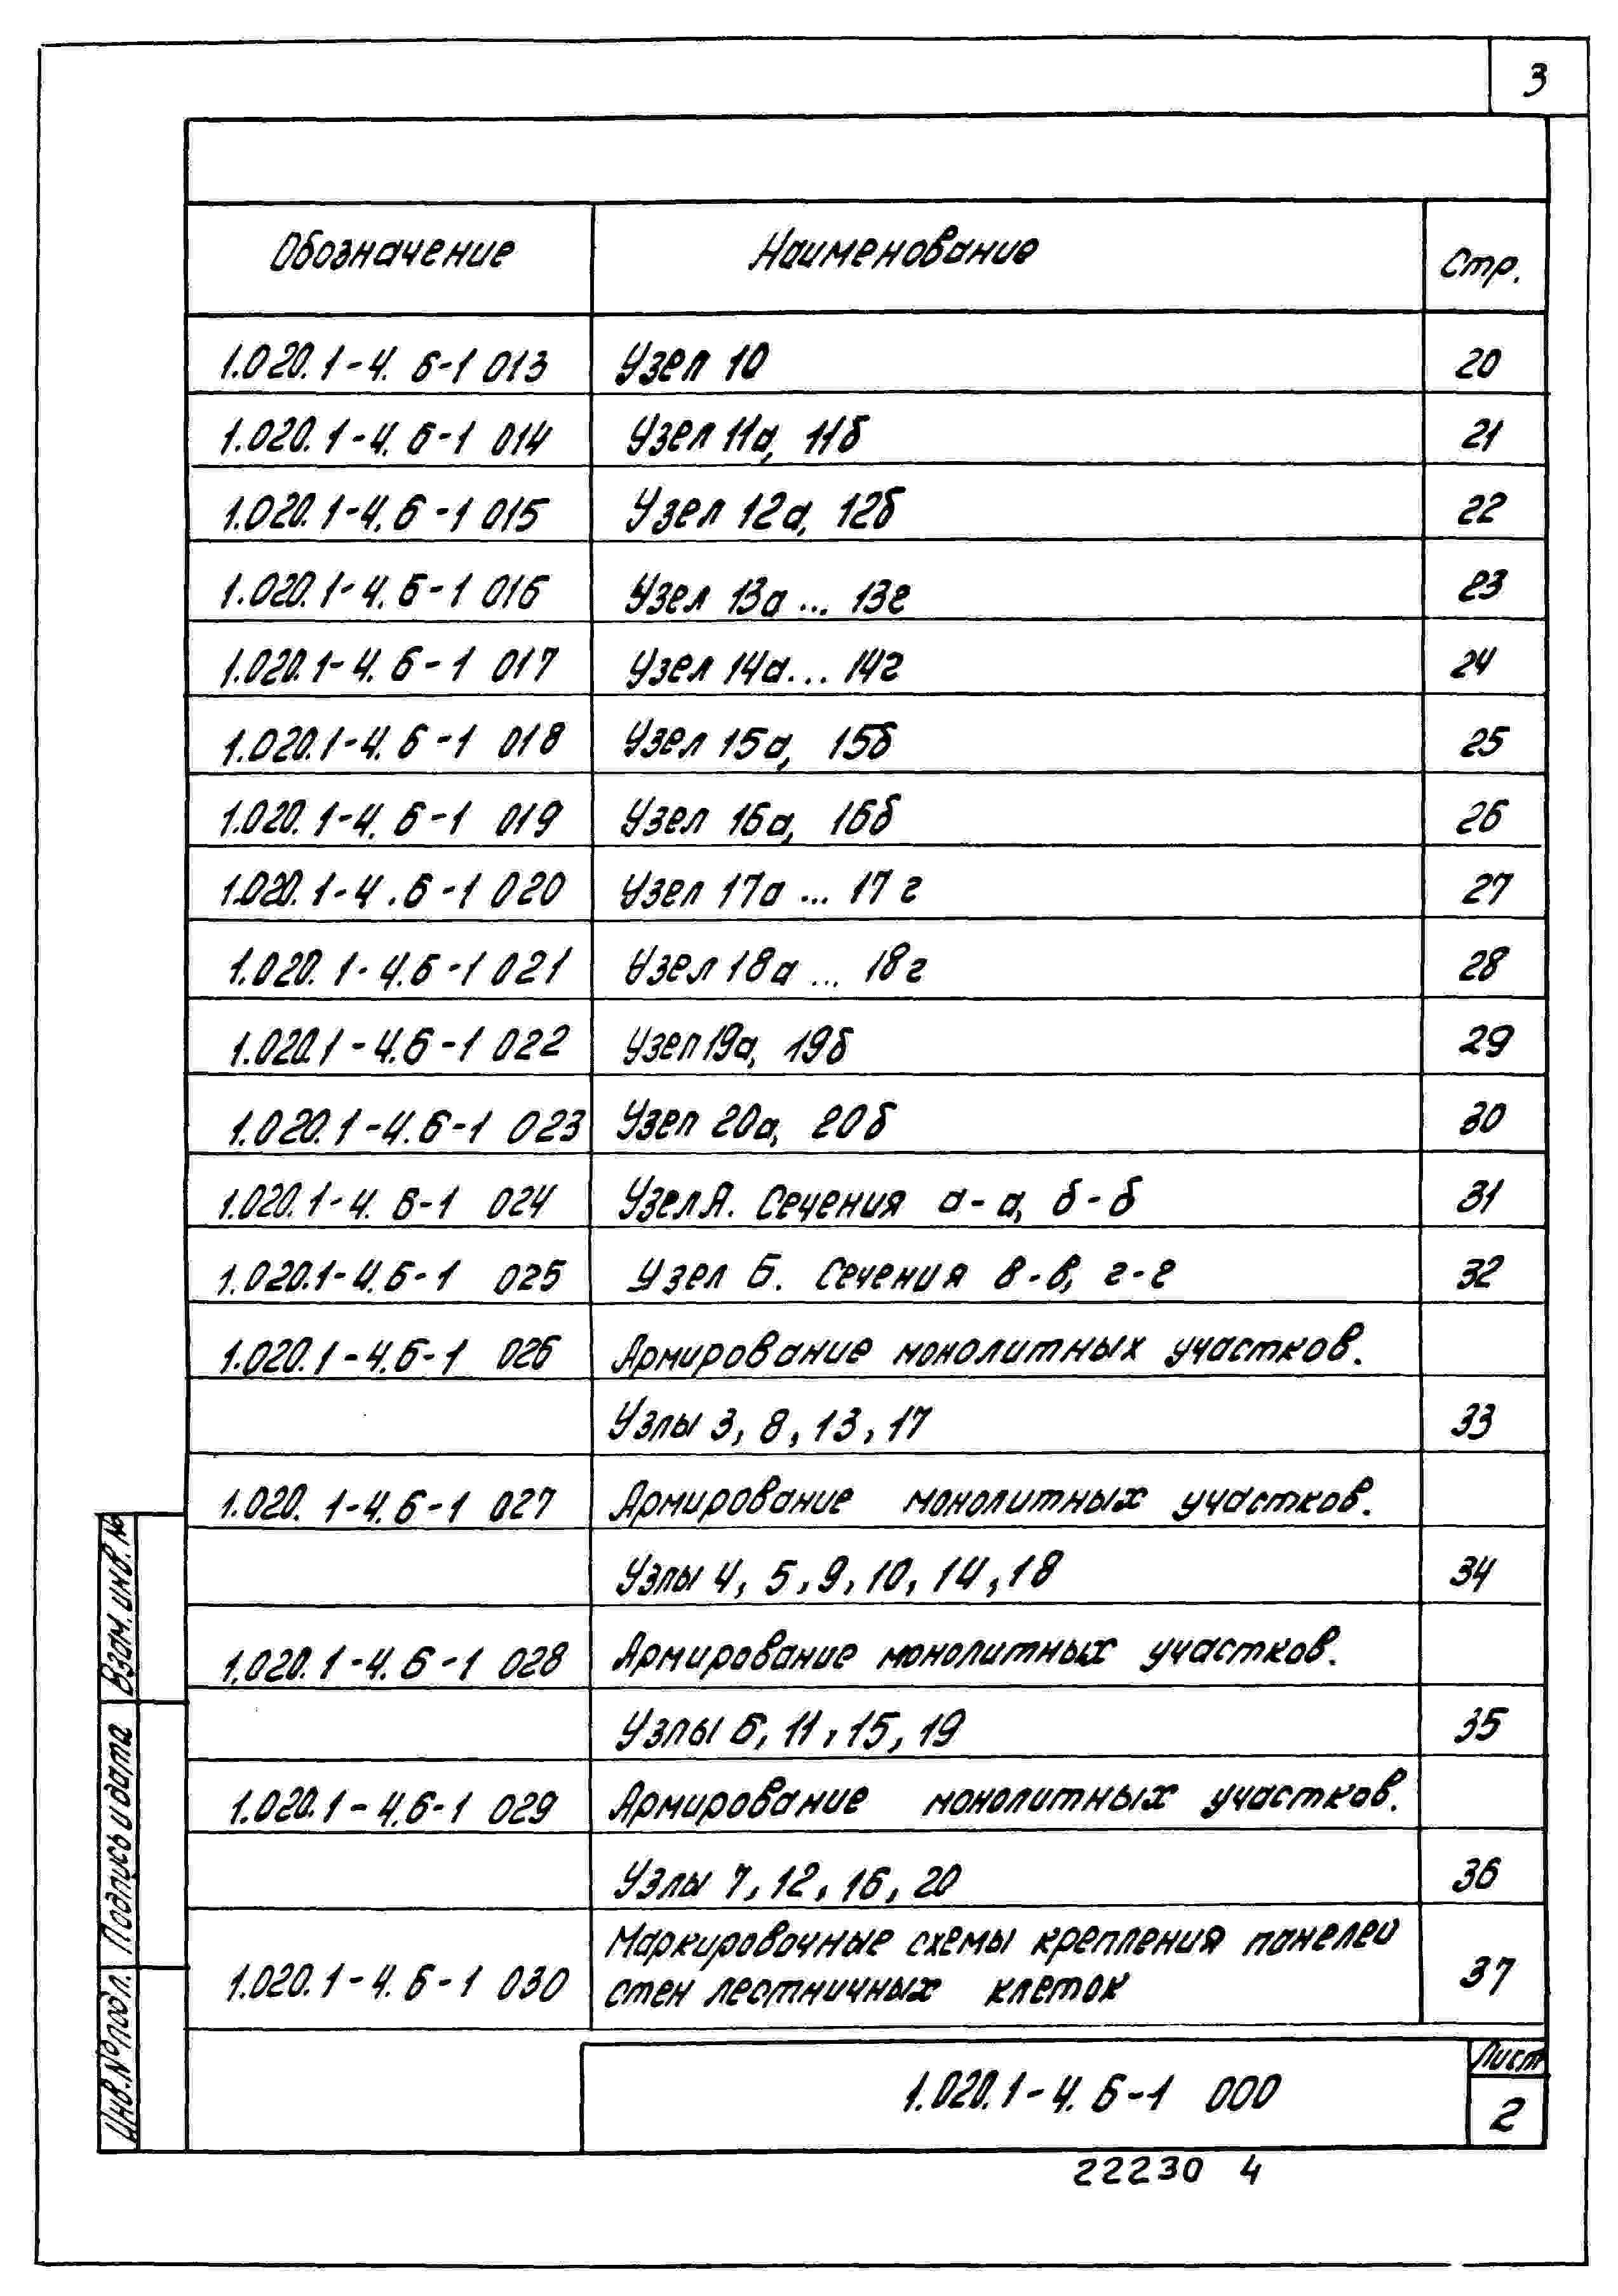 3
Обозначение Наименование Стр.
1.020.1-4.6-1 013 Узел 10 20
1.020.1-4.6-1 014 Узел 11а, 11б 21
1.020.1-4.6-1 015 Узел 12а, 12б 22
1.020.1-4.6-1 016 Узел 13а ... 13г 23
1.020.1-4.6-1 017 Узел 14а... 14г 24
1.020.1-4.6-1 018 Узел 15а, 15б 25
1.020.1-4.6-1 019 Узел 16а, 16б 26
1.020.1-4.6-1 020 Узел 17а ... 17г 27
1.020.1-4.6-1 021 Узел 18а ... 18г 28
1.020.1-4.6-1 022 Узел 19а, 19б 29
1.020.1-4.6-1 023 Узел 20а, 20б 30
1.020.1-4.6-1 024 Узел А. Сечения а-а, б-б 31
1.020.1-4.6-1 025 Узел Б. Сечения в-в, г-г 32
1.020.1-4.6-1 026 Армирование монолитных участков.
Узлы 3, 8, 13, 17 33
1.020.1-4.6-1 027 Армирование монолитных участков.
Узлы 4, 5, 9, 10, 14, 18 34
1.020.1-4.6-1 028 Армирование монолитных участков.
Узлы 6, 11, 15, 19 35
1.020.1-4.6-1 029 Армирование монолитных участков.
Узлы 7, 12, 16, 20 36
Маркировочные схемы крепления панелей
1.020.1-4.6-1 030 стен лестничных клеток 37
Взам. инв. №
Подпись и дата
Инв. № подл.
1.020.1-4.6-1 000
Лист
2
22230 4